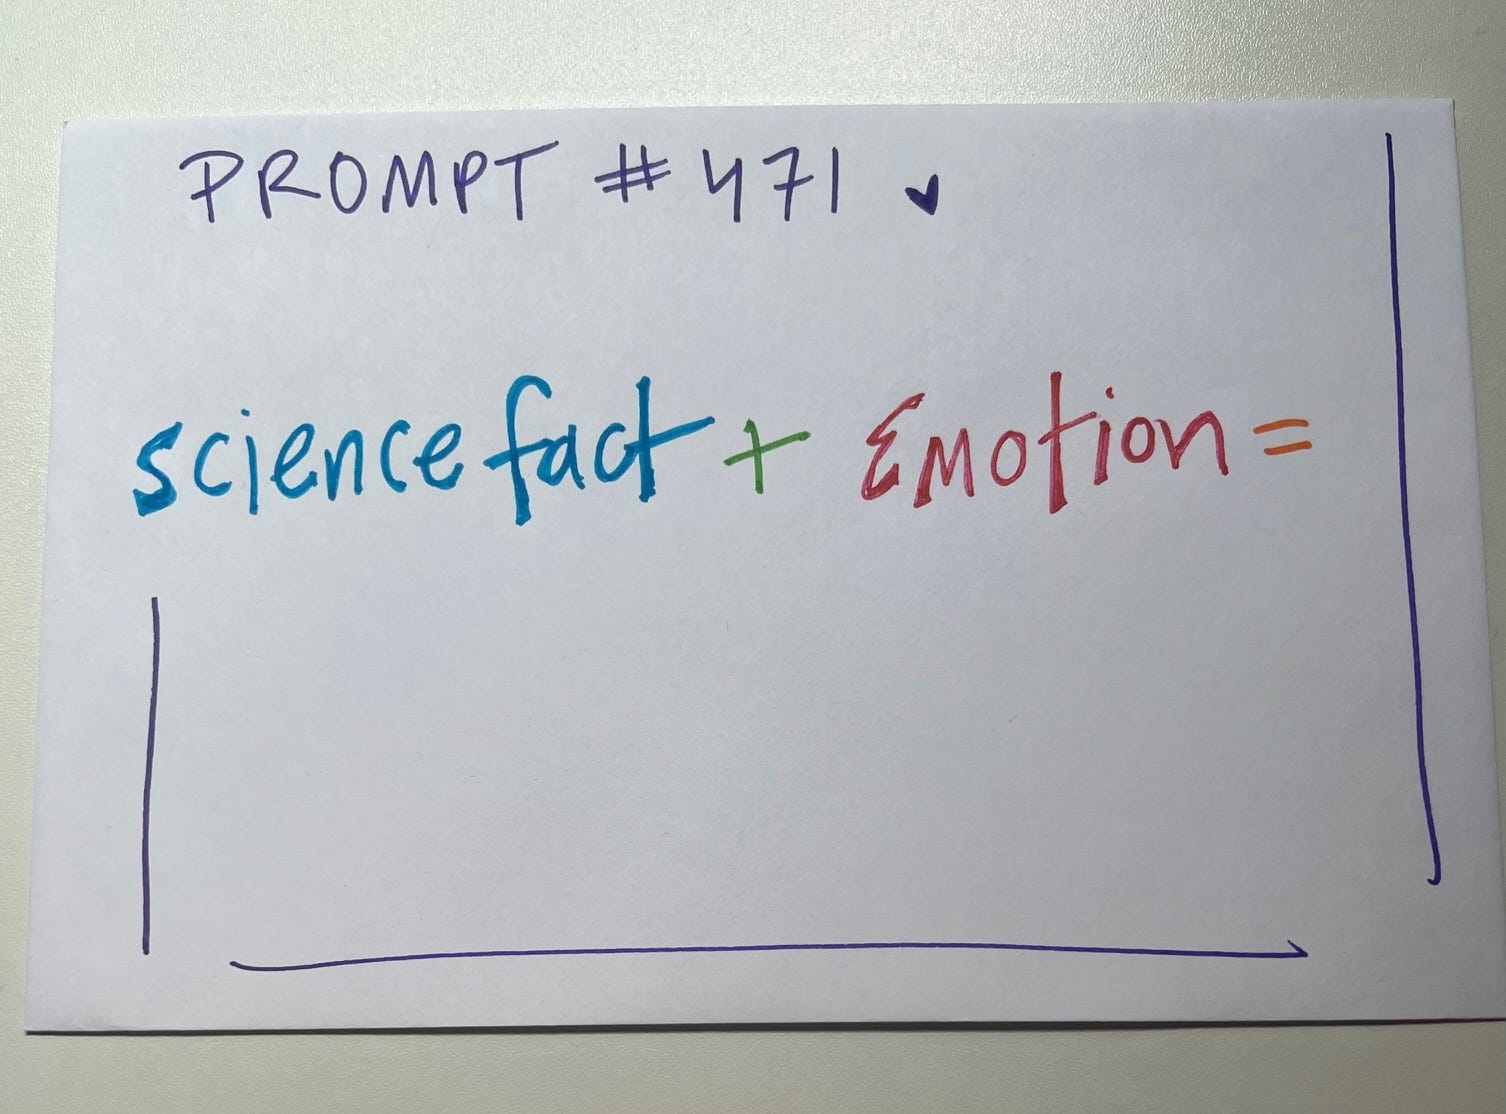 PROMPT #471 ♥
science fact + Emotion =